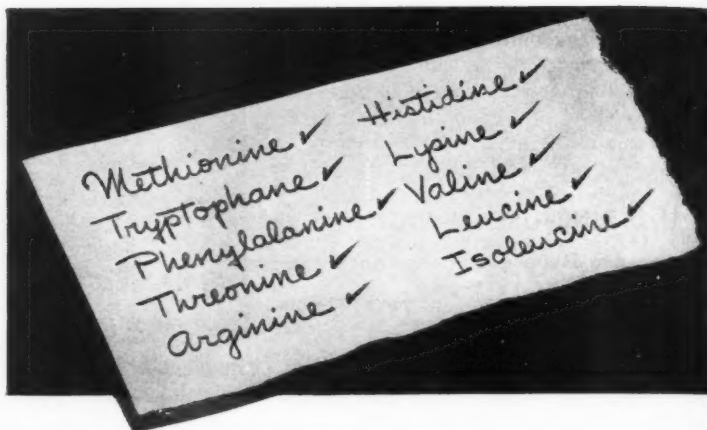 Methionine ✓
Tryptophane ✓
Phenylalanine ✓
Threonine ✓
Arginine ✓
Histidine ✓
Lysine ✓
Valine ✓
Leucine ✓
Isoleucine ✓